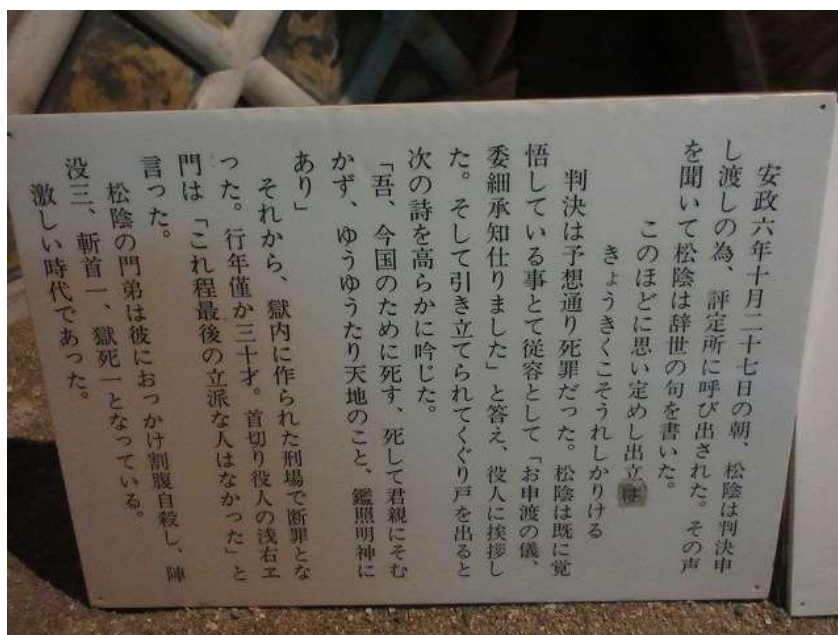 安政六年十月二十七日の朝、松陰は判決申
し渡しの為、評定所に呼び出された。その声
を聞いて松陰は辞世の句を書いた。
このほどに思い定めし出立は
きょうきくこそうれしかりける
判決は予想通り死罪だった。松陰は既に覚
悟している事とて従容として「お申渡の儀、
委細承知仕りました」と答え、役人に挨拶し
た。そして引き立てられてくぐり戸を出ると
次の詩を高らかに吟じた。
「吾、今国のために死す、死して君親にそむ
かず、ゆうゆうたり天地のこと、鑑照明神に
あり」
それから、獄内に作られた刑場で断罪とな
った。行年僅か三十才。首切り役人の浅右ヱ
門は「これ程最後の立派な人はなかった」と
言った。
松陰の門弟は彼におっかけ割腹自殺し、陣
没三、斬首一、獄死一となっている。
激しい時代であった。